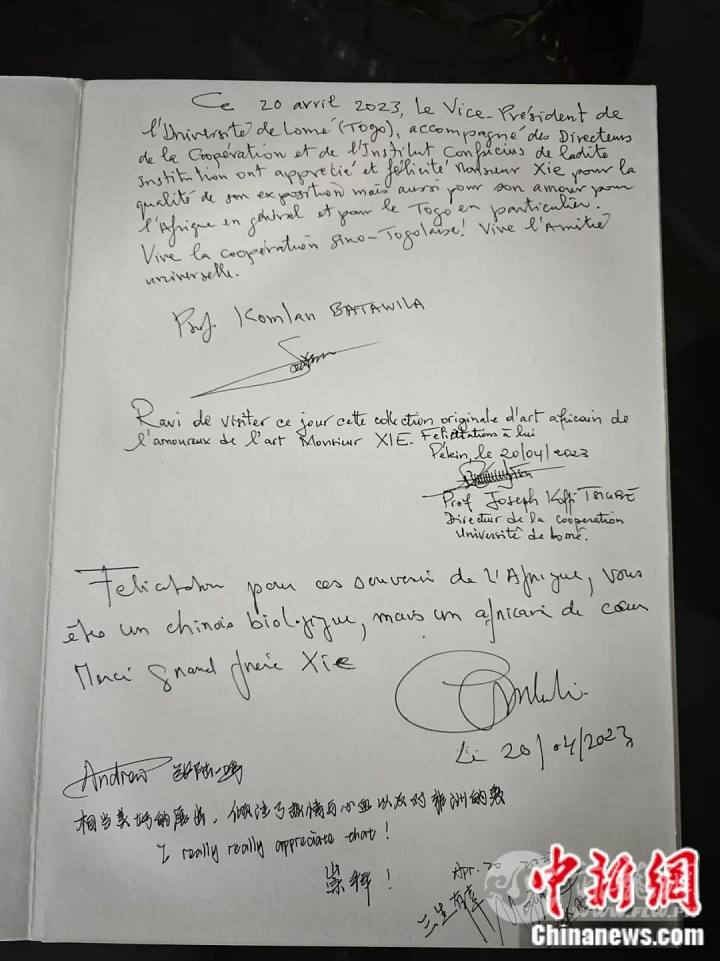 Ce 20 avril 2023, Le Vice-Président de
l'Université de Lomé (Togo), accompagné des Directeurs
de la Coopération et de l'Institut Confucius de ladite
institution ont apprécié et félicité Monsieur Xie pour la
qualité de son exposition mais aussi pour son amour pour
l'Afrique en général et pour le Togo en particulier.
Vive la coopération Sino-Togolaise! Vive l'Amitié
universelle.
Prof. Komlan BATAWILA
Ravi de visiter ce jour cette collection originale d'art africain de
l'amoureux de l'art Monsieur XIE. Félicitations à lui
Pékin, le 20/04/2023
Prof Joseph Koffi TSIGBE
Directeur de la coopération
Université de Lomé.
Felicitation pour ces souvenir de l'Afrique, vous
êtes un chinois biologique, mais un africain de cœur
Merci grand frère Xie
Le 20/04/2023
Andrew
相当美好的展出，倾注了热情与心血以及对非洲的爱
I really really appreciate that!
崇拜！
Apr. 20
三生有幸
中新网
Chinanews.com